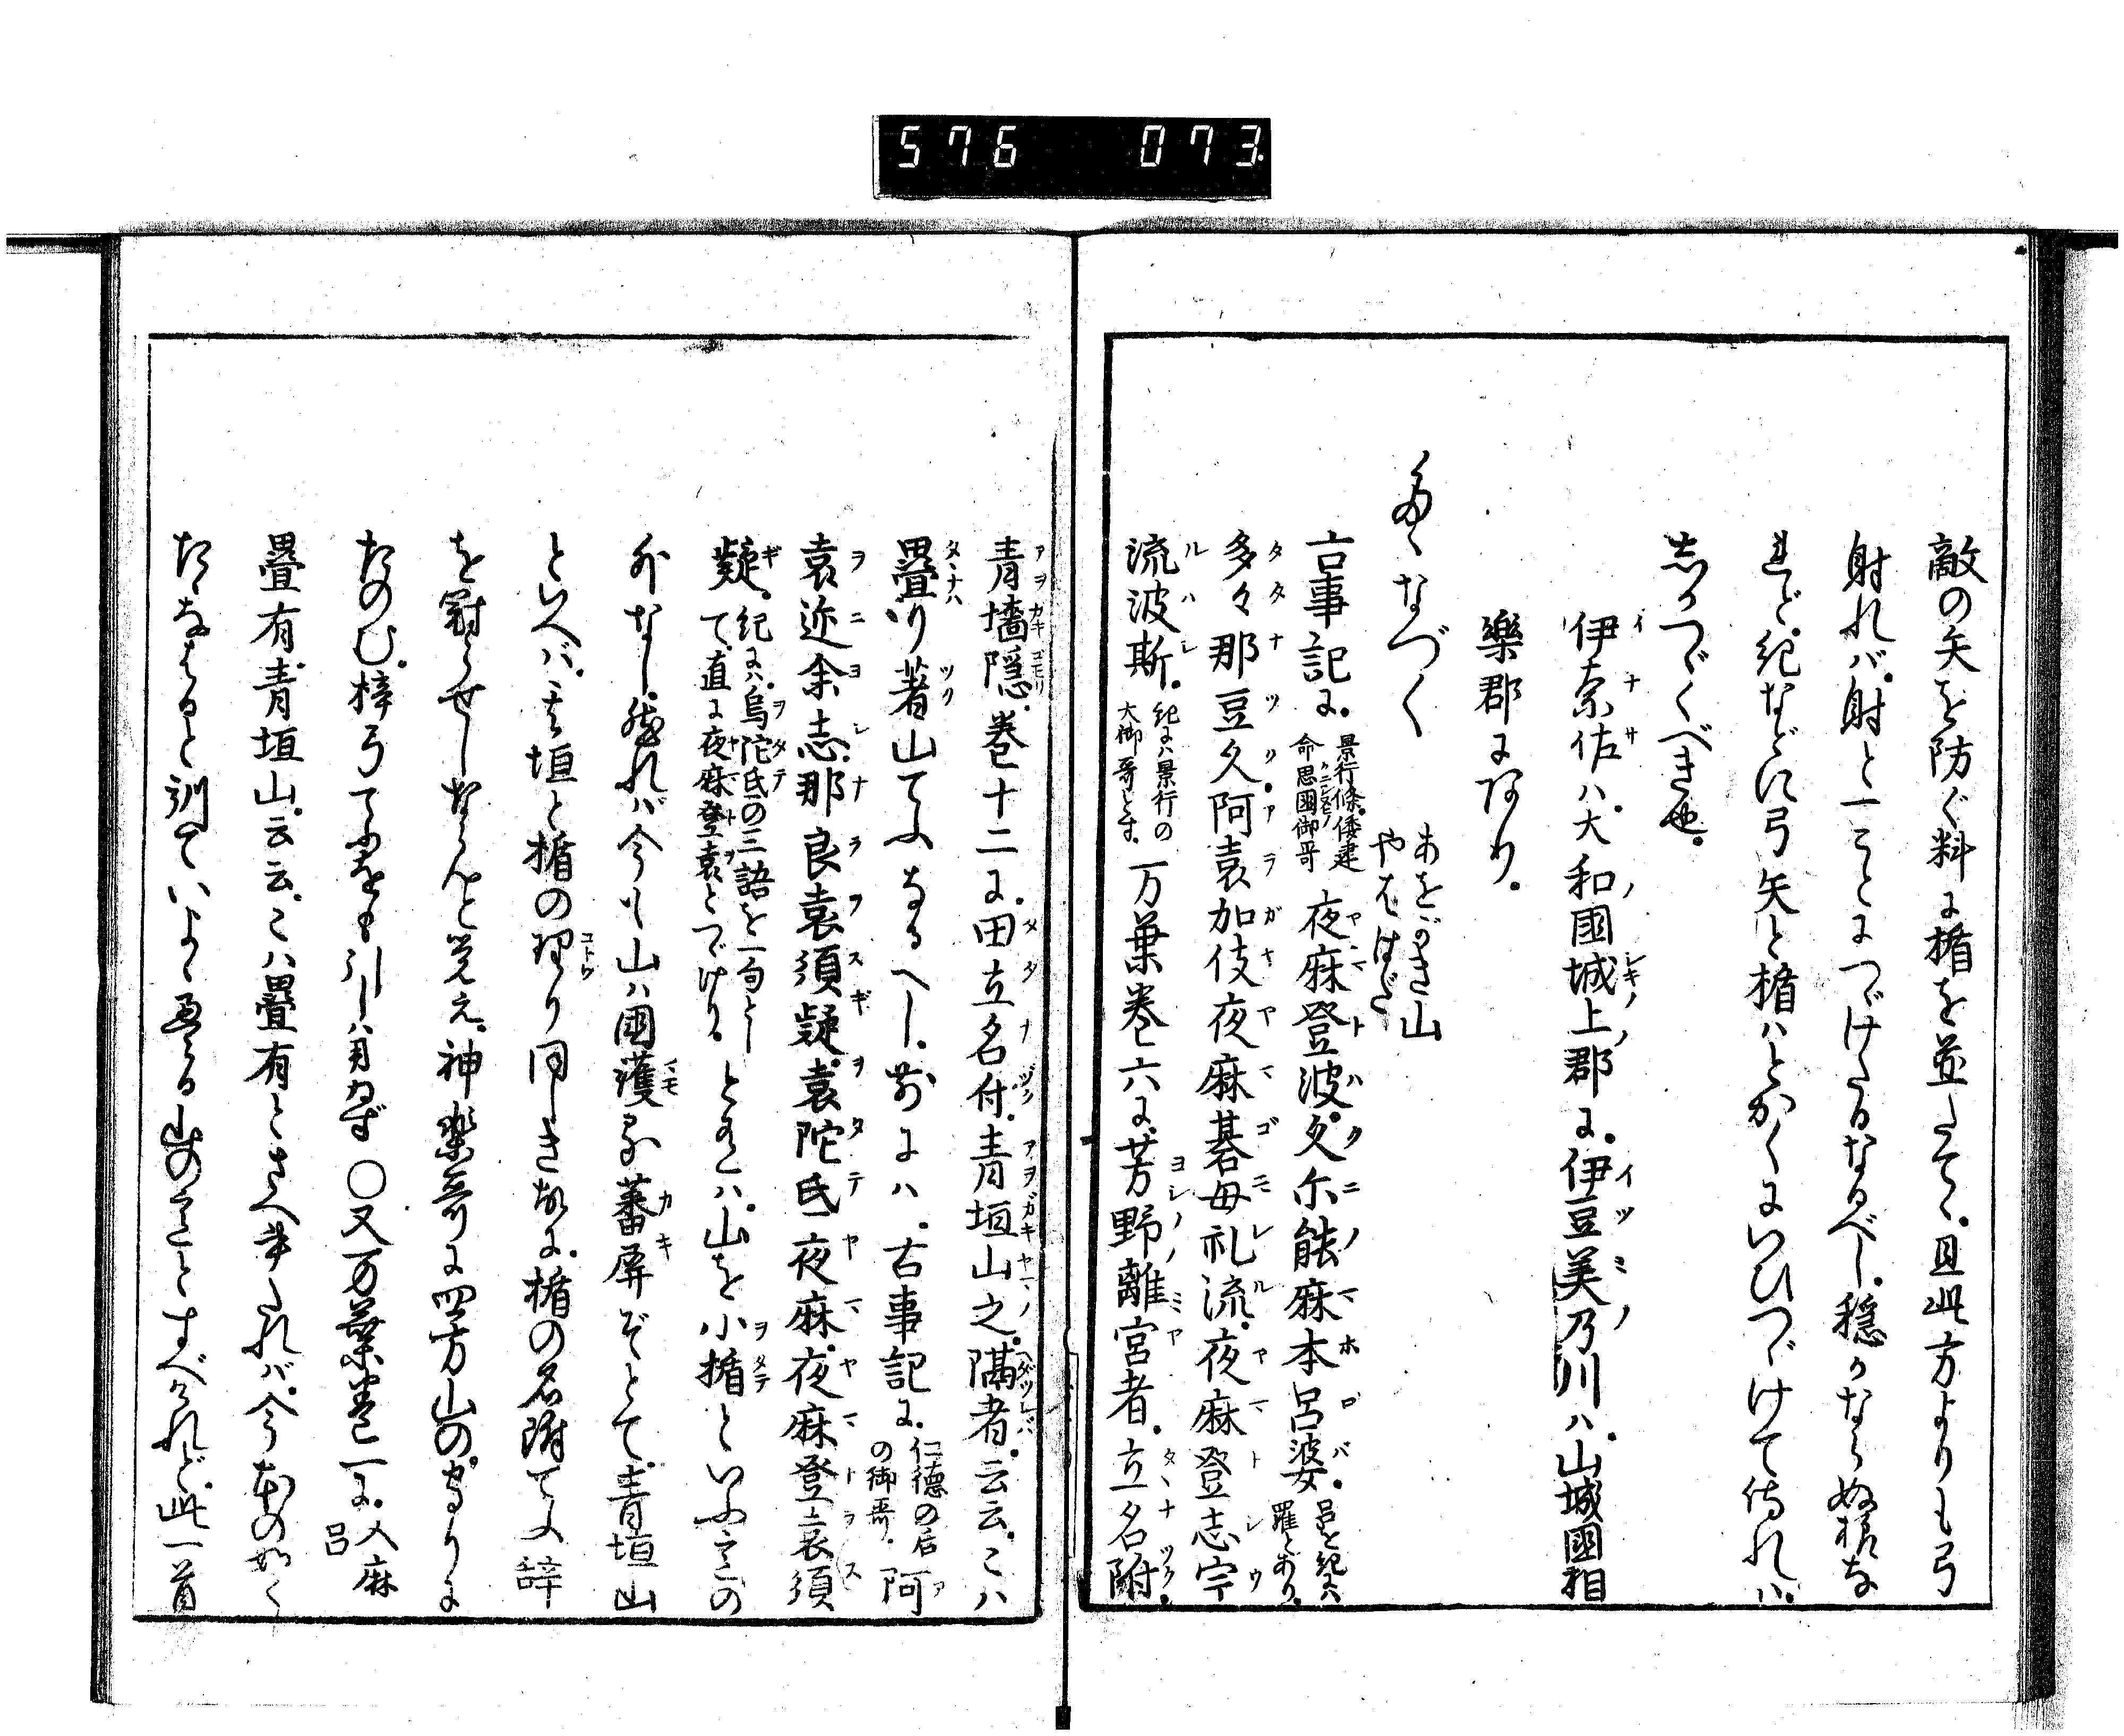 576 073
敵の矢を防ぐ料に楯を並たて、且此方よりも弓
射れバ、射と一ことにつゞけたるなるべし、穏かならぬ様な
れど、紀などに弓矢と楯ハとかくにいひつゞけて侍れハ、
しかつゞくべき也、
伊奈佐ハ、大和國城上郡に、伊豆美乃川ハ、山城國相
樂郡にあり、
たゝなづく あをがき山 やはゝだ
古事記に、景行條、倭建命思國御哥 夜麻登波、久尓能麻本呂婆、呂を紀にハ羅とあり、
多々那豆久、阿袁加伎夜麻碁母礼流、夜麻登志宇
流波斯、紀にハ景行の大御哥とす、万葉巻六に、芳野離宮者、立名附、
青墻隠、巻十二に、田立名付、青垣山之、隔者、云云、こハ
疊り著山てふなるへし、前にハ、古事記に、仁德の后の御哥、阿
袁迩余志、那良袁須疑、袁陀氐、夜麻、夜麻登袁須
疑、紀にハ、烏陀氐の三語を一句として、直に夜麻登袁とつゞけり、とあるハ、山を小楯といふことの
外なし、然れバ今も山ハ國護る蕃屏ぞとて、青垣山
といへバ、その垣と楯の理り同しき故に、楯の名附てふ辞
を冠らせしならんと覚え、神楽哥に四方山の、守りに
たのむ、梓弓てふをも引しハ用ゐず ○又万葉巻一に、人麻呂
疊有、青垣山、云云、こハ疊有とさへ書たれバ、今本の如く
たゝなはると訓ていよゝ疊る山のことすべけれど、此一首